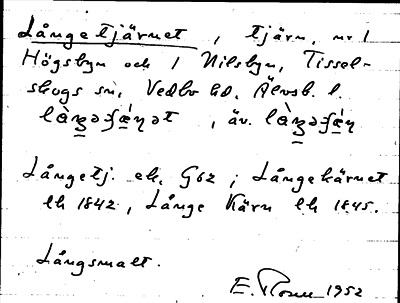 Långetjärnet, tjärn, nr 1
Högsbyn och 1 Nilsbyn, Tissel-
skogs sn, Vedbo hd, Älvsb. l.
, äv.
Långetj. ek. G62; Långekärnet
lk 1842, Långe Kärn lk 1845.
Långsmalt.
E. Rosen 1952